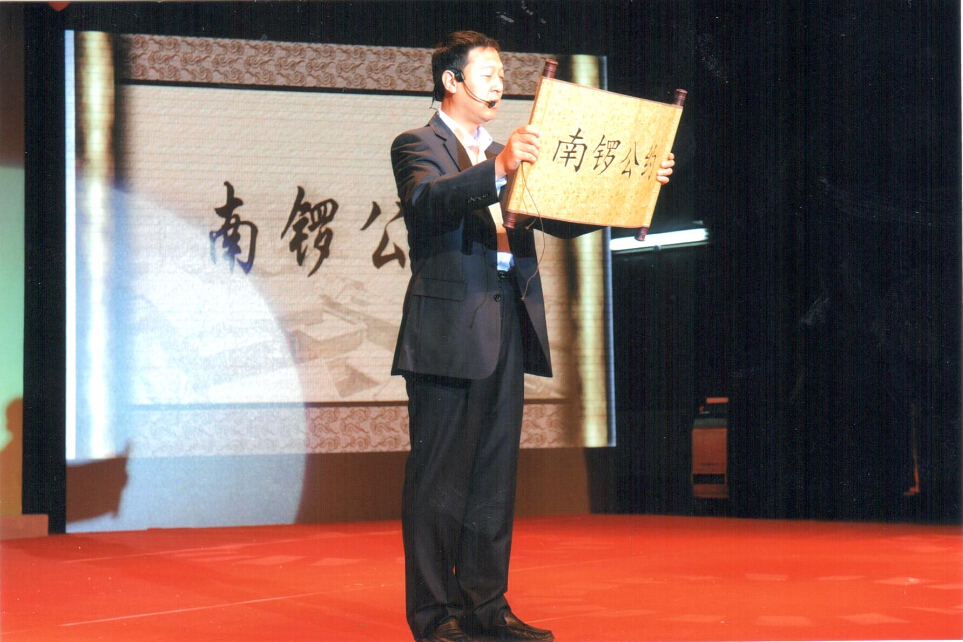 南锣公
南锣公约